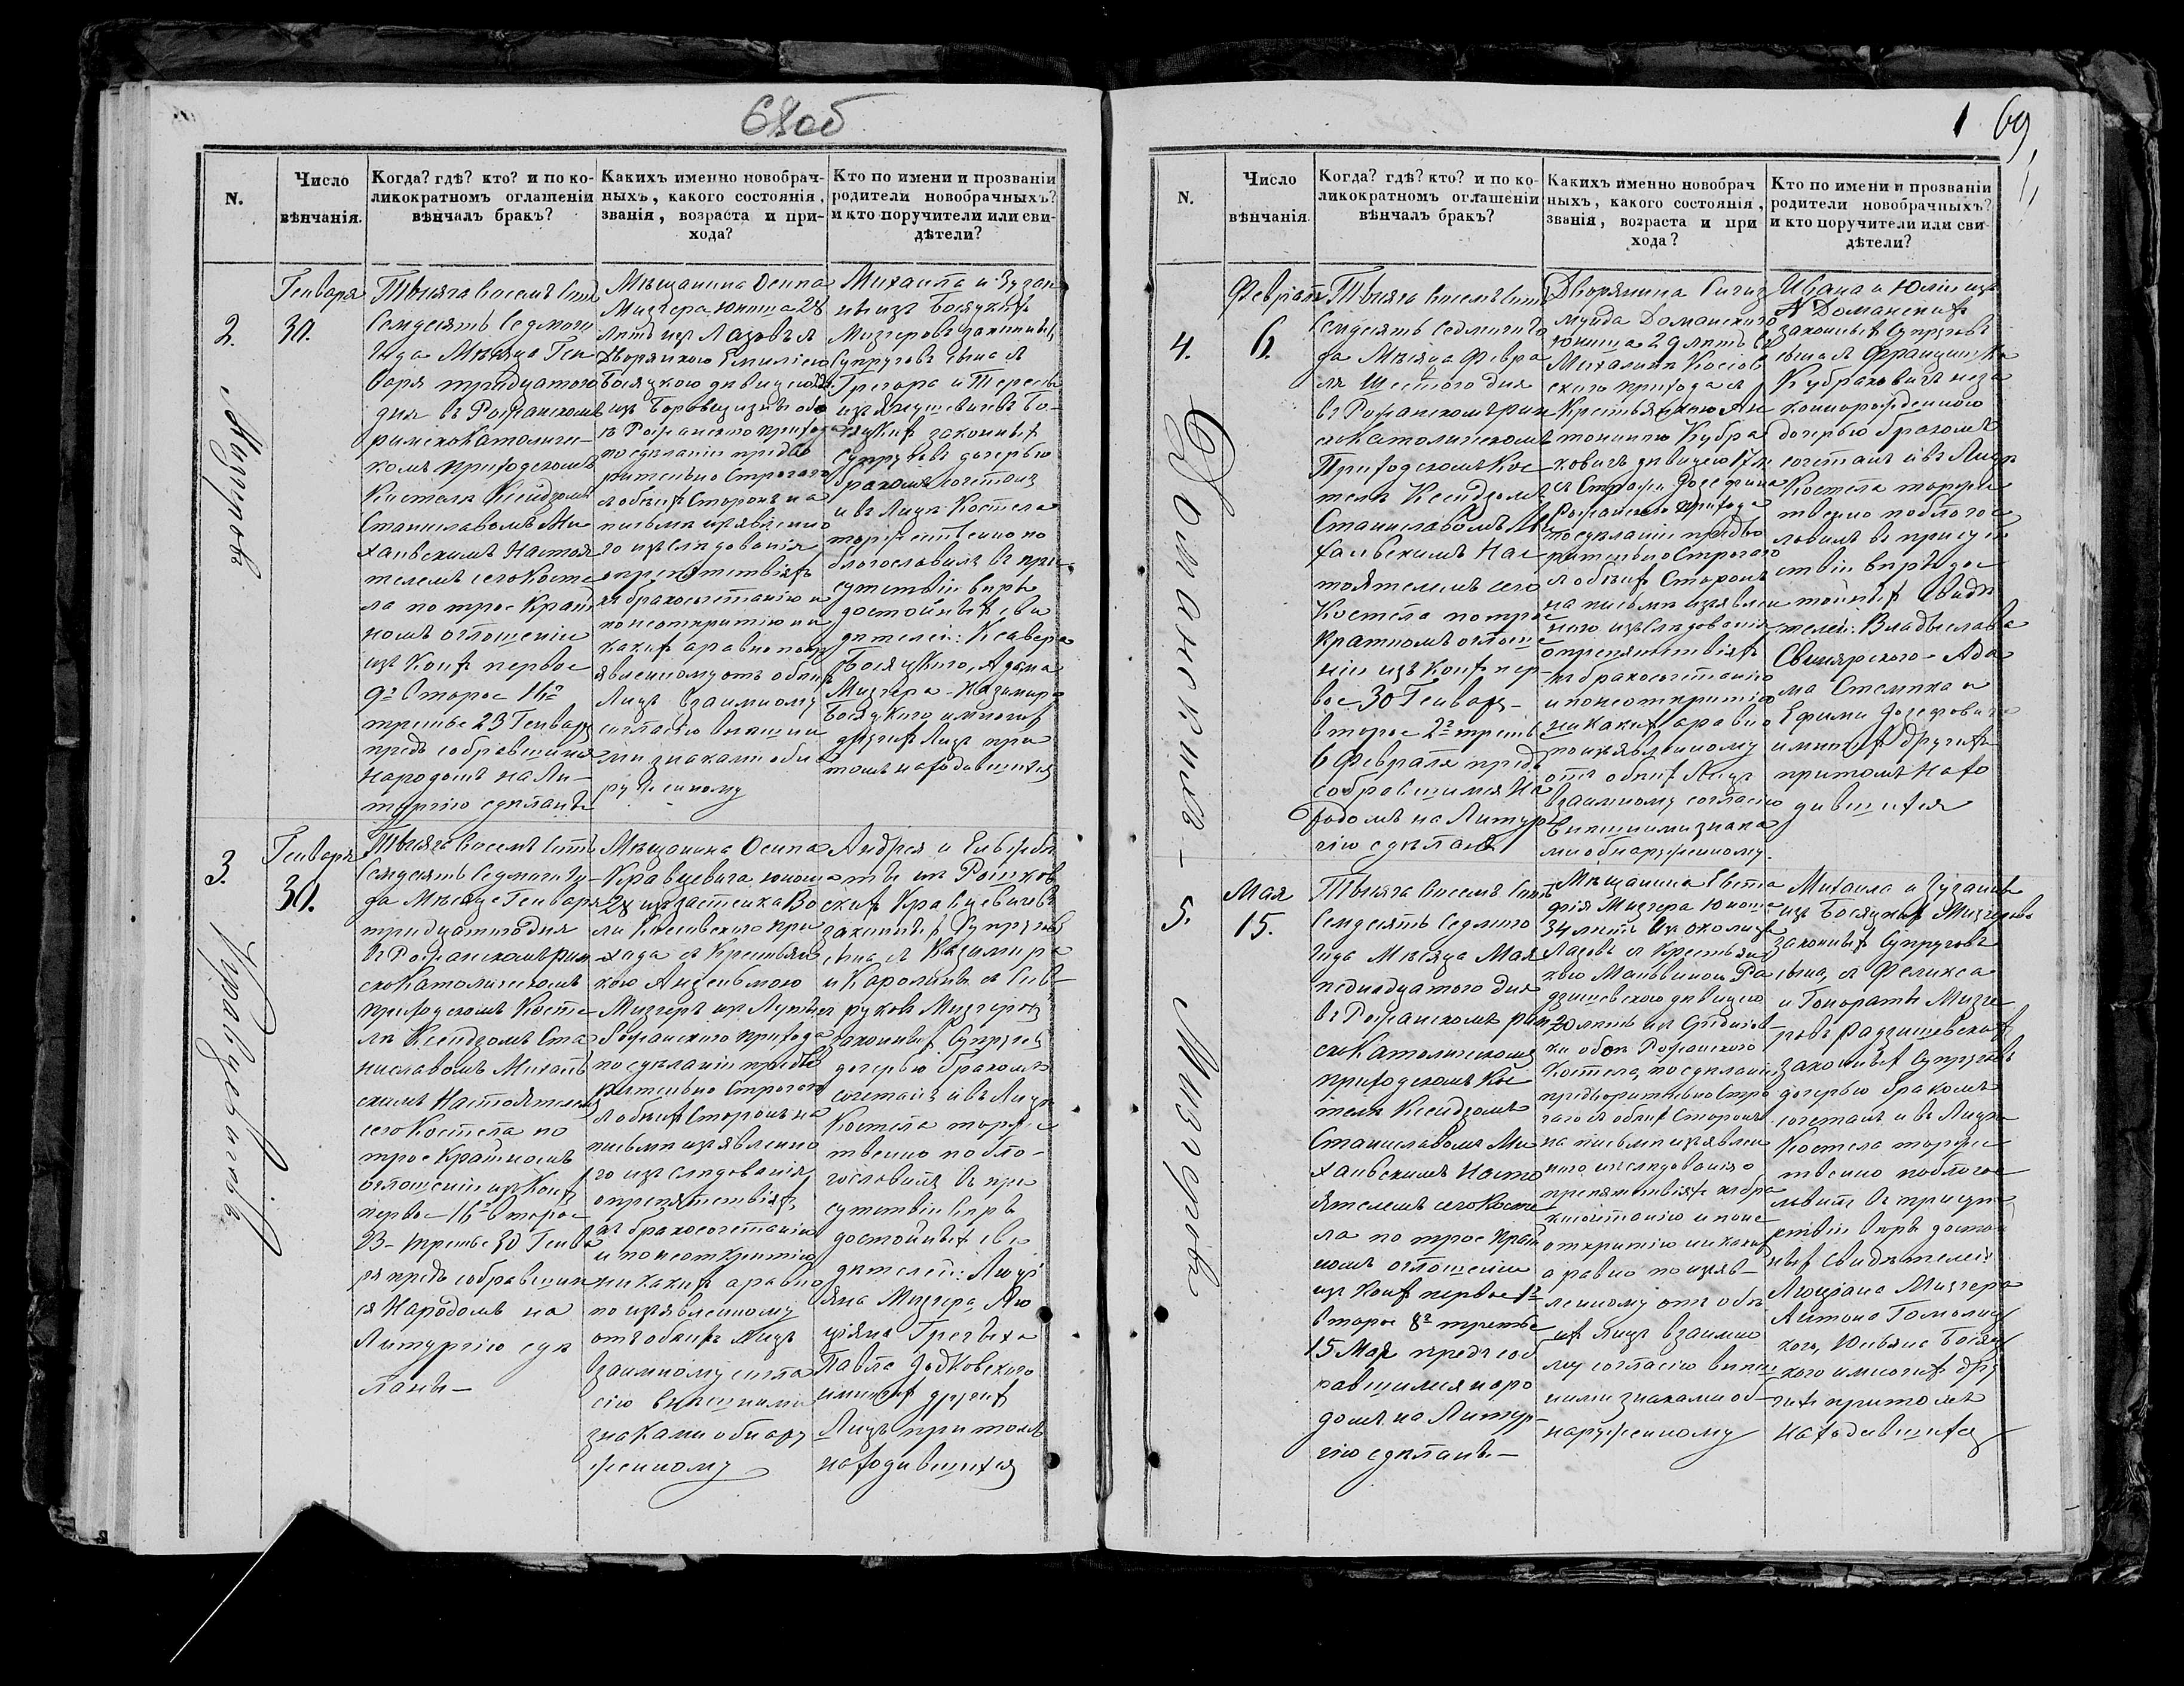 68об
N.
Число
вѣнчанія.
Когда? гдѣ? кто? и по ко-
ликократномъ оглашеніи
вѣнчалъ бракъ?
Какихъ именно новобрач-
ныхъ, какого состоянія,
званія, возраста и при-
хода?
Кто по имени и прозваніи
родители новобрачныхъ?
и кто поручители или сви-
дѣтели?
2.
Генваря
30.
Тысяча восемь сотъ
Семдесятъ Седмого
Года Мѣсяца Ген
варя тридцатого
дня въ Рожанскомъ
римскокатоличес-
комъ приходскомъ
Костелѣ Ксендзомъ
Станиславомъ Ми
хальскимъ Настоя
телемъ сего Косте
ла по трое Крат
номъ оглашеніи
изъ коихъ первое
9го Второе 16го
третье 23 Генваря
предъ собравшимся
народомъ на Ли-
тургію сдѣланъ
Мѣщанина Осипа
Мизгера юноша 28
лѣтъ изъ Лазовъ съ
Дворянкою Емиліею
Босяцкою дѣвицею 22
изъ Боровщизнъ обо
ихъ Рожанского прихода
по сдѣланіи предва
рительно Строгого
съ обоихъ Сторонъ на
письмѣ изъявленно
го изслѣдованія
о препятствіяхъ
къ бракосочетанію и
по неоткрытію ни
какихъ а равно по изъ
явленному отъ обоихъ
Лицъ взаимному
согласію внѣшни
ми знаками обна
руженному
Михаила и Зузан
ны изъ Босяцкихъ
Мизгеровъ законныхъ
Супруговъ сына съ
Грегора и Терезы
изъ Янушевичевъ Бо-
сяцкихъ законныхъ
Супруговъ дочерью
бракомъ сочеталъ
и въ Лицѣ Костела
торжественно по
благословилъ въ при
сутствіи вѣры
достойныхъ сви
дѣтелей: Ксавера
Босяцкого, Адама
Мизгера - Казимира
Босяцкого и многихъ
другихъ Лицъ при
томъ находившихся
Мизгеровъ
3.
Генваря
30.
Тысяча восемь сотъ
Семдесятъ Седмого Го-
да Мѣсяца Генваря
тридцатого дня
въ Рожанскомъ рим
скокатолическомъ
приходскомъ Косте
лѣ Ксендзомъ Ста
ниславомъ Михаль
скимъ Настоятелемъ
сего Костела по
трое Кратномъ
оглашеніи изъ Коихъ
первое 16го Второе
23 - третье 30 Генва
ря предъ собравшим
ся Народомъ на
Литургію сдѣ
ланъ -
Мѣщанина Осипа
Кравцевича юноша
28 изъ застенка Во
ли Косовского при
хода съ Крестьян
кою Анзельмою
Мизгеръ изъ Лупинъ
Рожанского прихода
по сдѣланіи предва
рительно Строгого
съ обоихъ Сторонъ на
письмѣ изъявленно
го изслѣдованія
о препятствіяхъ
къ бракосочетанію
и по неоткрытію
никакихъ а равно
по изъявленному
отъ обоихъ Лицъ
взаимному согла
сію внѣшними
знаками обнару
женному
Андрея и Елизабе
ты изъ Рошков
скихъ Кравцевичевъ
законныхъ Супруговъ
сына съ Казимира
и Каролины съ Сив-
руковъ Мизгеровъ
законныхъ Супруговъ
дочерью бракомъ
сочеталъ и въ Лицѣ
Костела торже
твенно побла-
гословилъ въ при
сутствіи вѣры
достойныхъ сви
дѣтелей: Люці
яна Мизгера, Лю
ціяна Гречыха
Павла Зодковского
и многихъ другихъ
Лицъ притомъ
находившихся
Кравцевичовъ
1 69
N.
Число
вѣнчанія.
Когда? гдѣ? кто? и по ко-
ликократномъ оглашеніи
вѣнчалъ бракъ?
Какихъ именно новобрач
ныхъ, какого состоянія,
званія, возраста и при
хода?
Кто по имени и прозваніи
родители новобрачныхъ?
и кто поручители или сви
дѣтели?
4.
Февраля
6.
Тысяча восемь сотъ
Семдесятъ Седмого Го
да Мѣсяца Февра
ля Шестого дня
въ Рожанскомъ рим
скокатолическомъ
Приходскомъ Кос
телѣ Ксендзомъ
Станиславомъ Ми
хальскимъ Нас
тоятелемъ сего
Костела по трое
кратномъ оглаше
ніи изъ Коихъ пер-
вое 30 Генваря -
второе 2го третье
6 Февраля предъ
собравшимся На
родомъ на Литур
гію сдѣланъ
Дворянина Сигиз
мунда Доманского
юноша 29 лѣтъ съ
Михалинъ Косов
ского прихода съ
Крестьянкою Ан
тониною Кубра
ковичъ дѣвицею 17 л
съ Строж. Зосефина
Рожанского Прихода
по сдѣланіи предва
рительно Строгого
съ обоихъ Сторонъ
на письмѣ изъявлен
ного изслѣдованія
о препятствіяхъ
къ бракосочетанію
и по неоткрытію
никакихъ а равно
по изъявленному
отъ обоихъ Лицъ
взаимному согласію
внѣшними знака
ми обнаруженному.
Ивана и Юліи изъ
N Доманскихъ
законныхъ Супруговъ
сына съ Францишка
Кубраковичъ неза
коннорожденною
дочерью бракомъ
сочеталъ и въ Лицѣ
Костела торже
твенно поблагос
ловилъ въ присут
ствіи вѣры дос
тойныхъ Свидѣ
телей: Владыслава
Свинярского - Ада
ма Стемпка и
Ефима Зосефовича
и многихъ другихъ
притомъ нахо
дившихся
Доманскихъ
5.
Мая
15.
Тысяча восемь сотъ
Семдесятъ Седмого
Года Мѣсяца Мая
пятнадцатого дня
въ Рожанскомъ рим
скокатолическомъ
приходскомъ Кос
телѣ Ксендзомъ
Станиславомъ Ми
хальскимъ Насто
ятелемъ сего Косте
ла по трое Крат
номъ оглашеніи
изъ Коихъ первое 1го
второе 8го третье
15 Мая предъ соб
равшимся наро
домъ на Литур-
гію сдѣланъ -
Мѣщанина Евста
фія Мизгера Юноша
34 лѣтъ изъ околицы
Лазовъ съ Крестьян
кою Мальвиною Ра
дзишевского дѣвицею
20 лѣтъ изъ
обоихъ Рожанского
Костела, по сдѣланіи
предварительно Стро
гого съ обоихъ Сторонъ
на письмѣ изъявлен
ного изслѣдованія о
препятствіяхъ къ бра
косочетанію и по не
открытію никакихъ
а равно по изъяв-
ленному отъ обо
ихъ лицъ взаимно
му согласію внѣш
ними знаками об-
наруженному
Михаила и Зузанны
изъ Босяцкихъ Мизгеровъ
законныхъ Супруговъ
сына, съ Феликса
и Гонораты Мизге
ровъ Радзишевскихъ
законныхъ Супруговъ
дочерью бракомъ
сочеталъ и въ Лицѣ
Костела торже
твенно поблагос
ловилъ въ присут
ствіи вѣры достой
ныхъ свидѣтелей:
Люціана Мизгера
Антона Гомолиц
кого, Юльяна Босяц
кого и многихъ дру
гихъ притомъ
находившихся
Мизгеръ